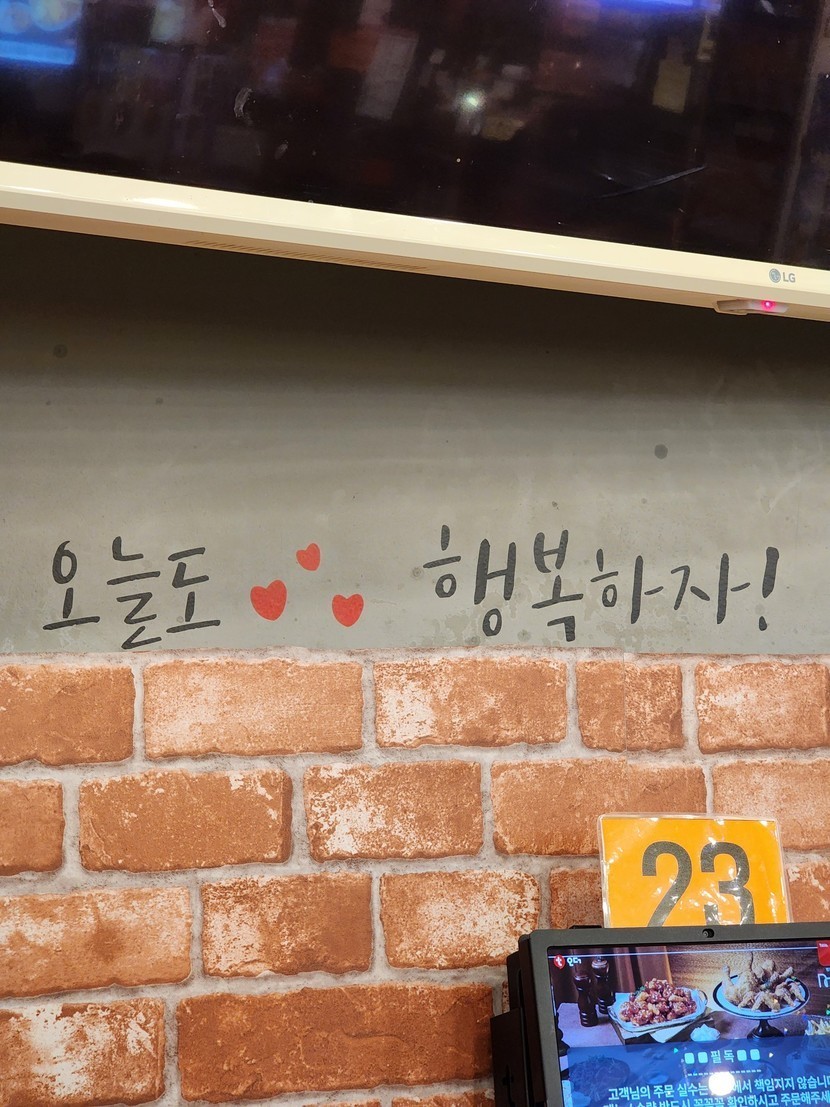 LG
오늘도 행복하자!
23
필독
고객님의 주문 실수는 책임지지 않습니다
확인하시고 주문해주세